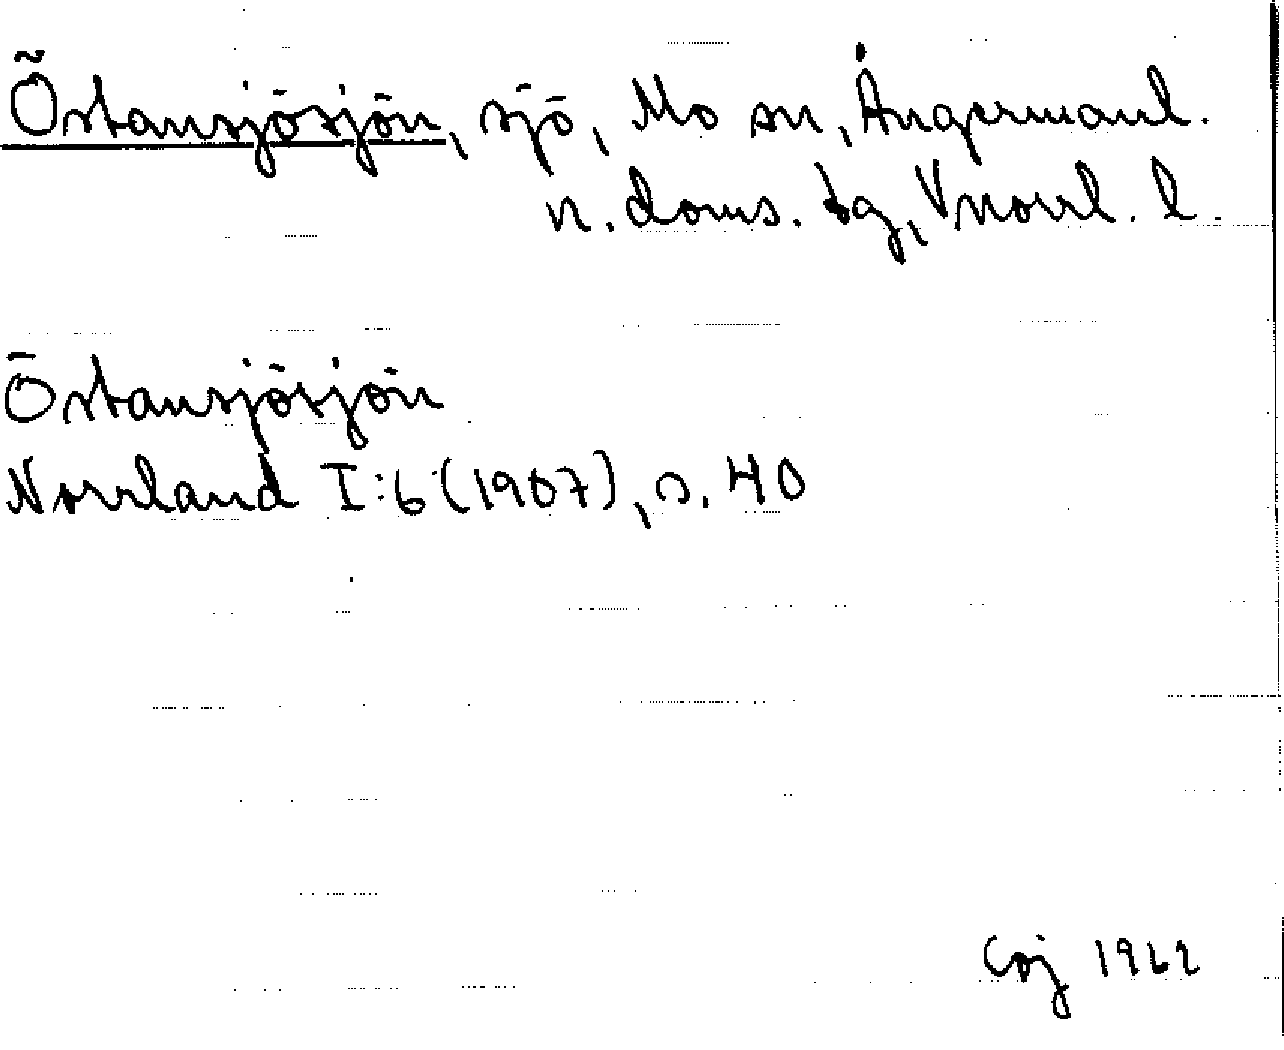 Östansjösjön, sjö, Mo sn, Ångermanl.
n. doms. tg, Vnorrl. l.
Östansjösjön
Norrland I:6 (1907), s. 40
1962